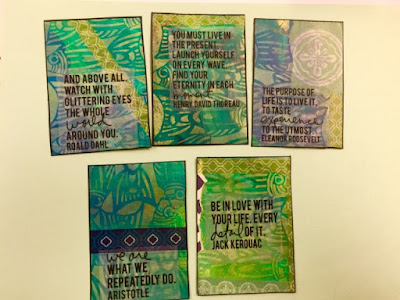 AND ABOVE ALL,
WATCH WITH
GLITTERING EYES
THE WHOLE
world
AROUND YOU.
ROALD DAHL
YOU MUST LIVE IN
THE PRESENT,
LAUNCH YOURSELF
ON EVERY WAVE,
FIND YOUR
ETERNITY IN EACH
moment.
HENRY DAVID THOREAU
THE PURPOSE OF
LIFE IS TO LIVE IT,
TO TASTE
experience
TO THE UTMOST.
ELEANOR ROOSEVELT
we are
WHAT WE
REPEATEDLY DO.
ARISTOTLE
BE IN LOVE WITH
YOUR LIFE. EVERY
detail OF IT.
JACK KEROUAC